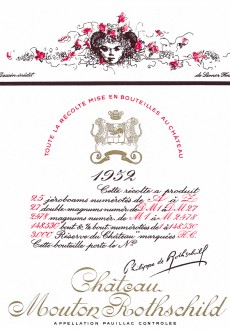 Dessin inédit
de Leonor Fini
TOUTE LA RÉCOLTE MISE EN BOUTEILLES AU CHÂTEAU
1952
Cette récolte a produit
25 jéroboams numérotés de A à Z
27 double magnums numér. de D M 1 à D M 27
2478 magnums numér. de M 1 à M 2478
bout. & ½ bout. numérotées de 1 à
3000 Réserve du Château marquées R.C.
Cette bouteille porte le No
Philippe de Rothschild
Château
Mouton Rothschild
APPELLATION PAUILLAC CONTRÔLÉE